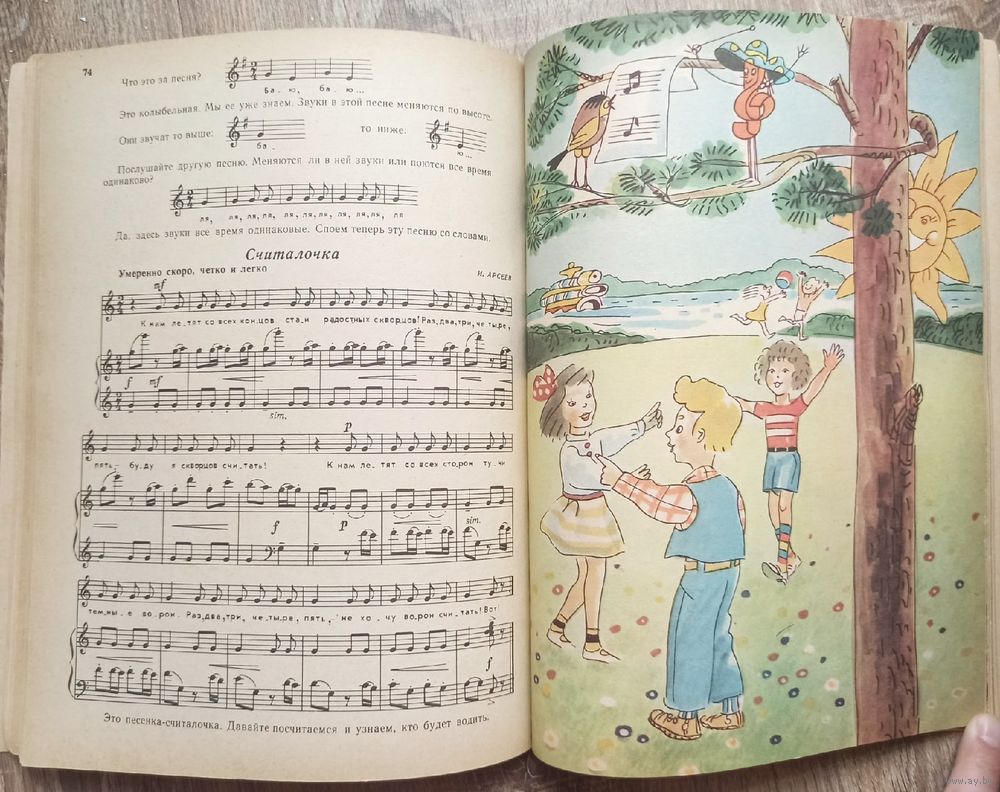 74
Что это за песня?
ба - ю, ба - ю...
Это колыбельная. Мы ее уже знаем. Звуки в этой песне меняются по высоте.
Они звучат то выше: то ниже:
ба - ю...
Послушайте другую песню. Меняются ли в ней звуки или поются все время
одинаково?
ля, ля, ля,ля, ля, ля,ля, ля, ля,ля, ля
Да, здесь звуки все время одинаковые. Споем теперь эту песню со словами.
Считалочка
Умеренно скоро, четко и легко И. АРСЕЕВ
mf
К нам ле_тят со всех кон_цов ста_и радостных скворцов! Раз,два,три,че_ты_ре,
f mf
sim.
p
пять,- бу_ду я скворцов счи_тать! К нам ле_тят со всех сто_рон ту_чи
f p sim.
тем_ны_е во_рон. Раз,два,три, че_ты_ре, пять,- не хо_чу во_рон счи_тать! Вот!
f
Это песенка-считалочка. Давайте посчитаемся и узнаем, кто будет водить.
www.ay.by